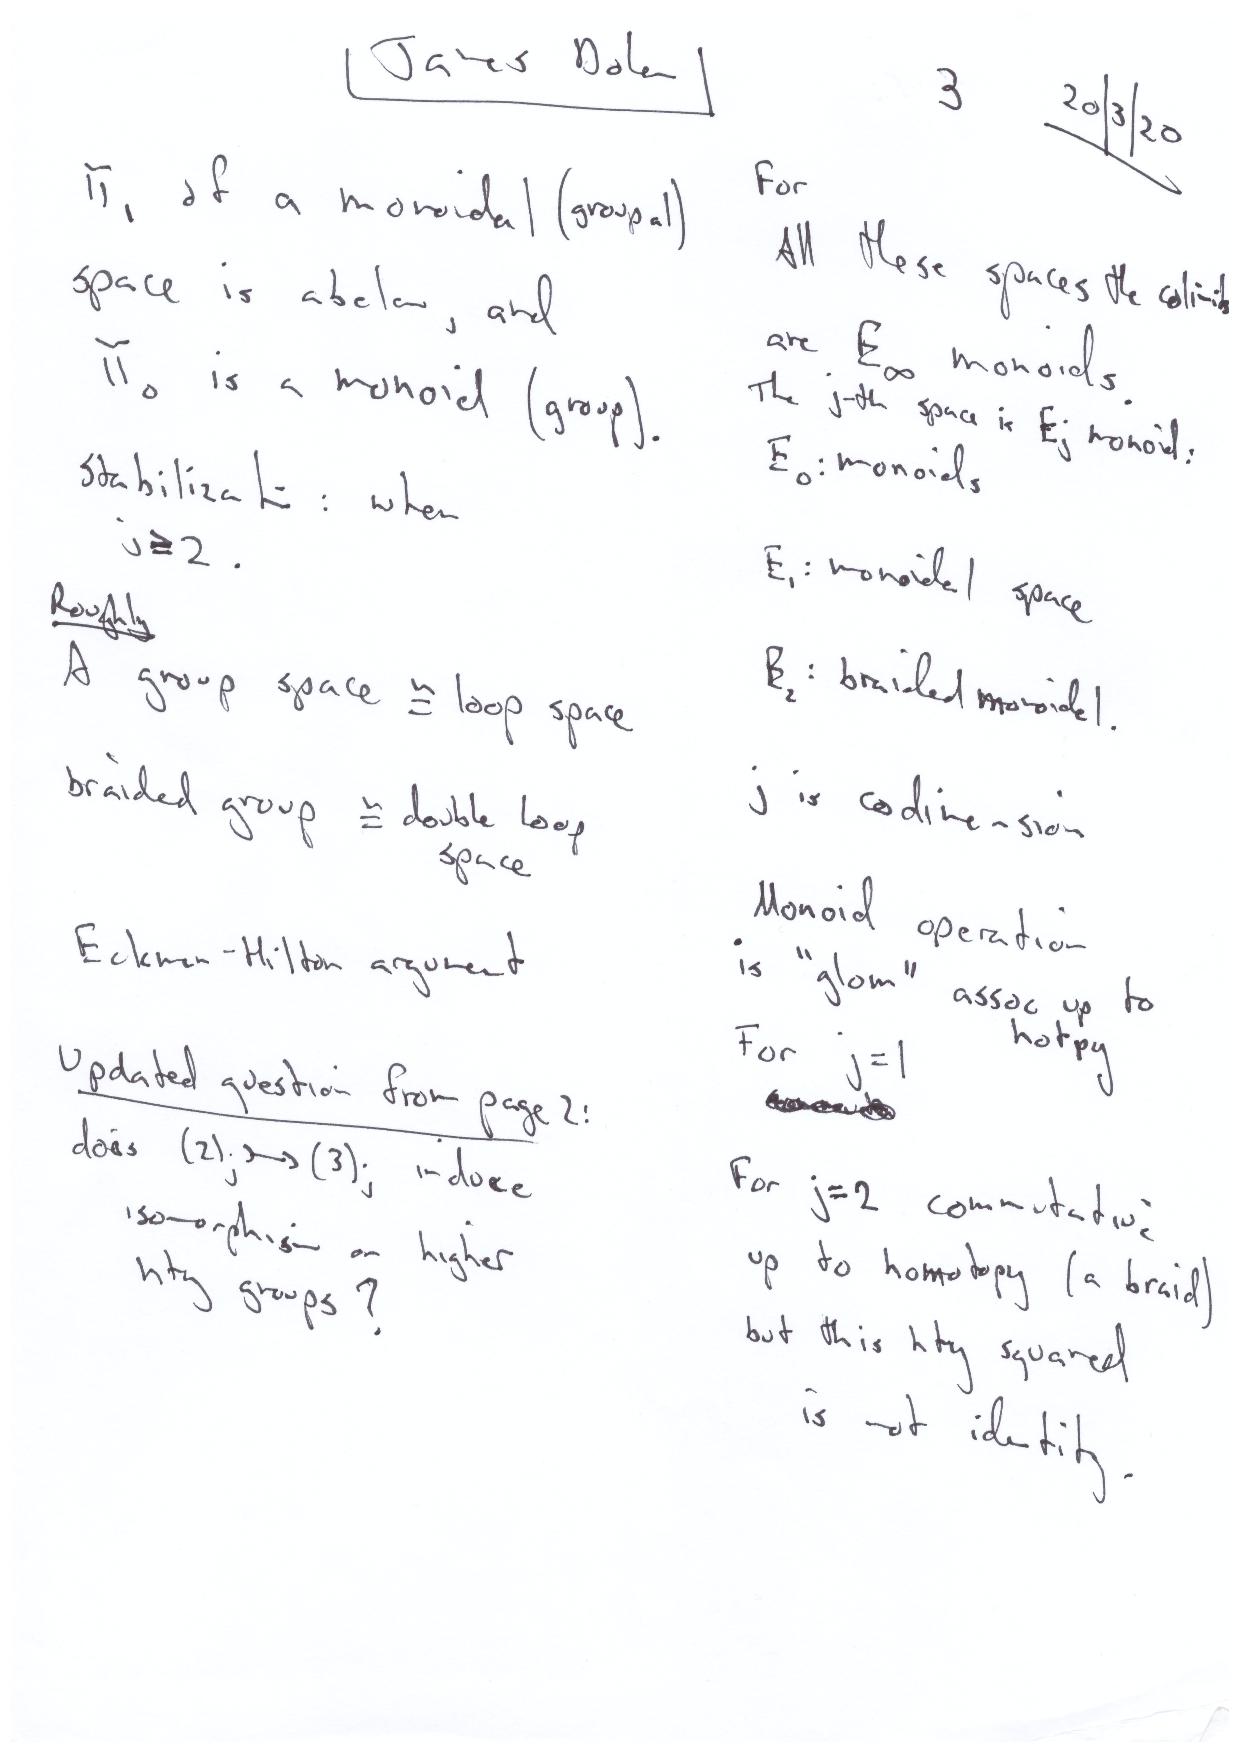 James Dolan
3
20/3/20
π₁ of a monoidal (groupal)
space is abelan, and
π₀ is a monoid (group).
Stabilizat : when
j ≥ 2.
Roughly
A group space ≅ loop space
braided group ≅ double loop
space
Eckman-Hilton argument
Updated question from page 2:
does (2)ⱼ ↣ (3)ⱼ induce
isomorphism on higher
hty groups?
For
All these spaces the colimits
are E∞ monoids.
The j-th space is Eⱼ monoid:
E₀: monoids
E₁: monoidal space
E₂: braided monoidal.
j is codimension
Monoid operation
is "glom" assoc up to
hotpy
For j=1
For j=2 commutative
up to homotopy (a braid)
but this hty squared
is not identity.